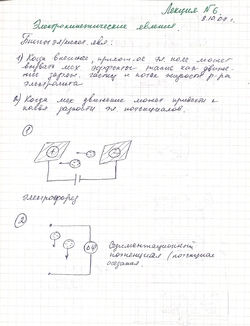 Лекция №6.
8.10.08 г.
Электрокинетические явления.
Типы эл/кинет. явл.:
1) Когда внешнее, эл. поле может
вызвать мех эффекты такие как движе-
ние заряж. частиц и поток жидкости р-ра
электролита
2) Когда мех движение может привести к
появл. разности эл. потенциалов.
①
электрофорез
②
Седиментационный
потенциал / потенциал
оседания.